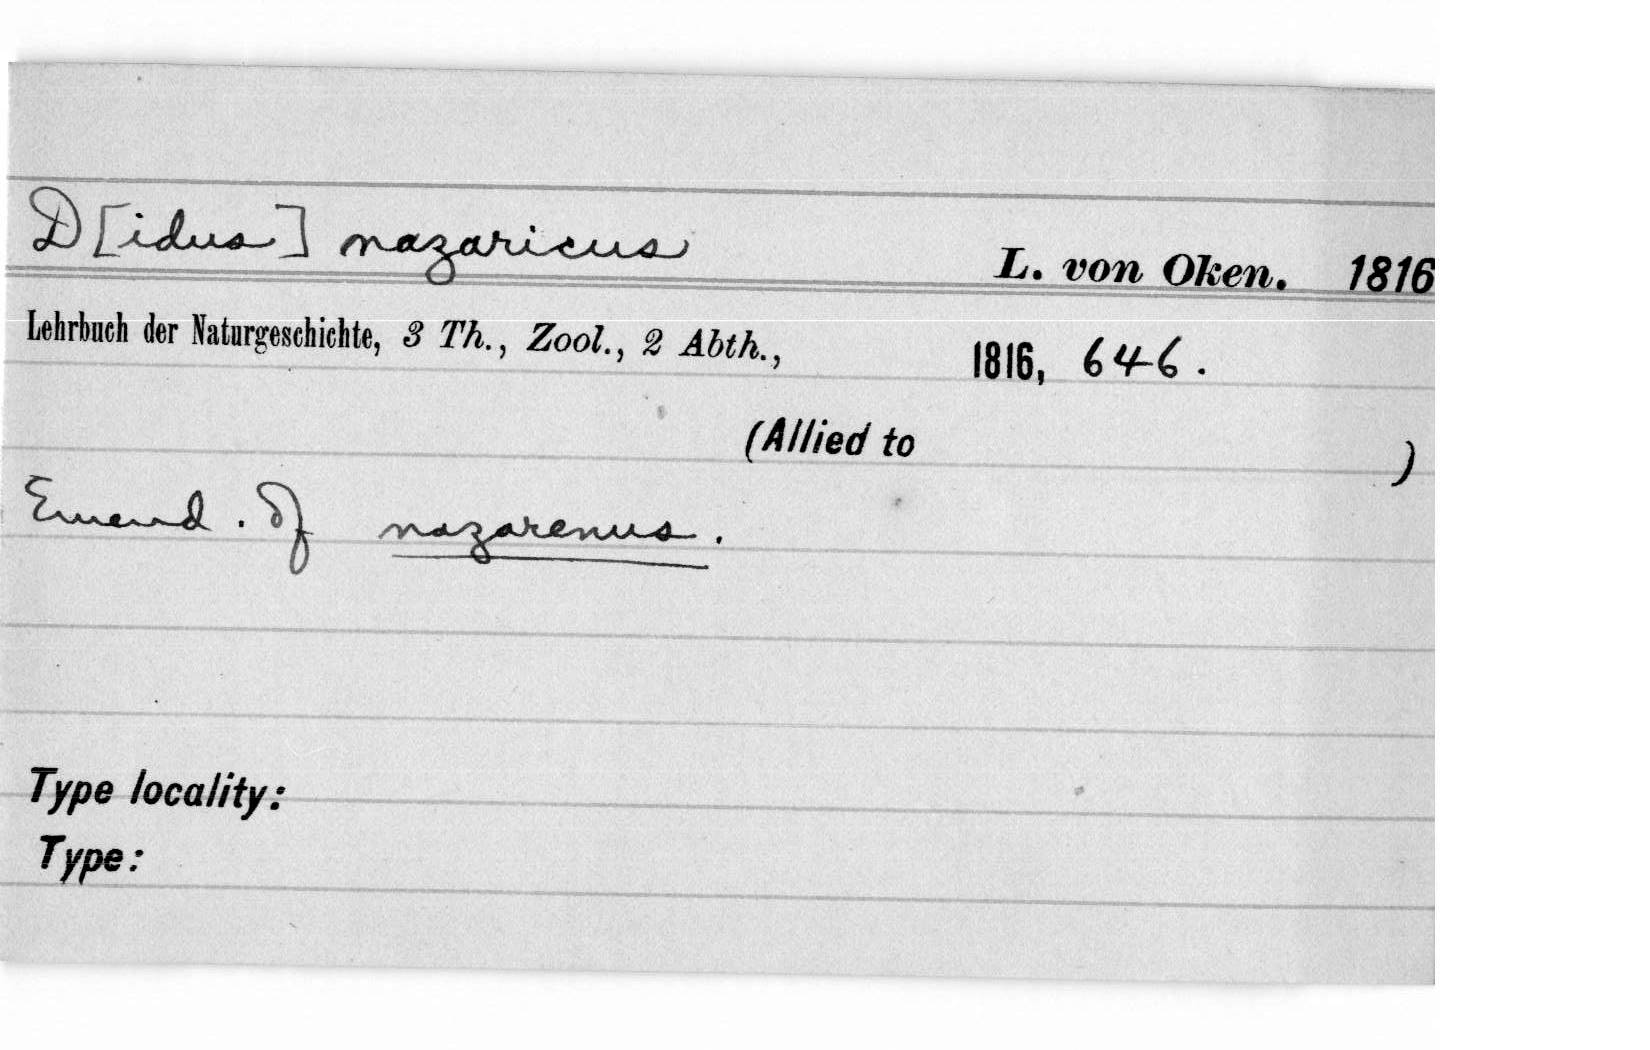 D[idus] nazaricus L. von Oken. 1816
Lehrbuch der Naturgeschichte, 3 Th., Zool., 2 Abth., 1816, 646.
(Allied to )
Emend. of nazarenus.
Type locality:
Type: